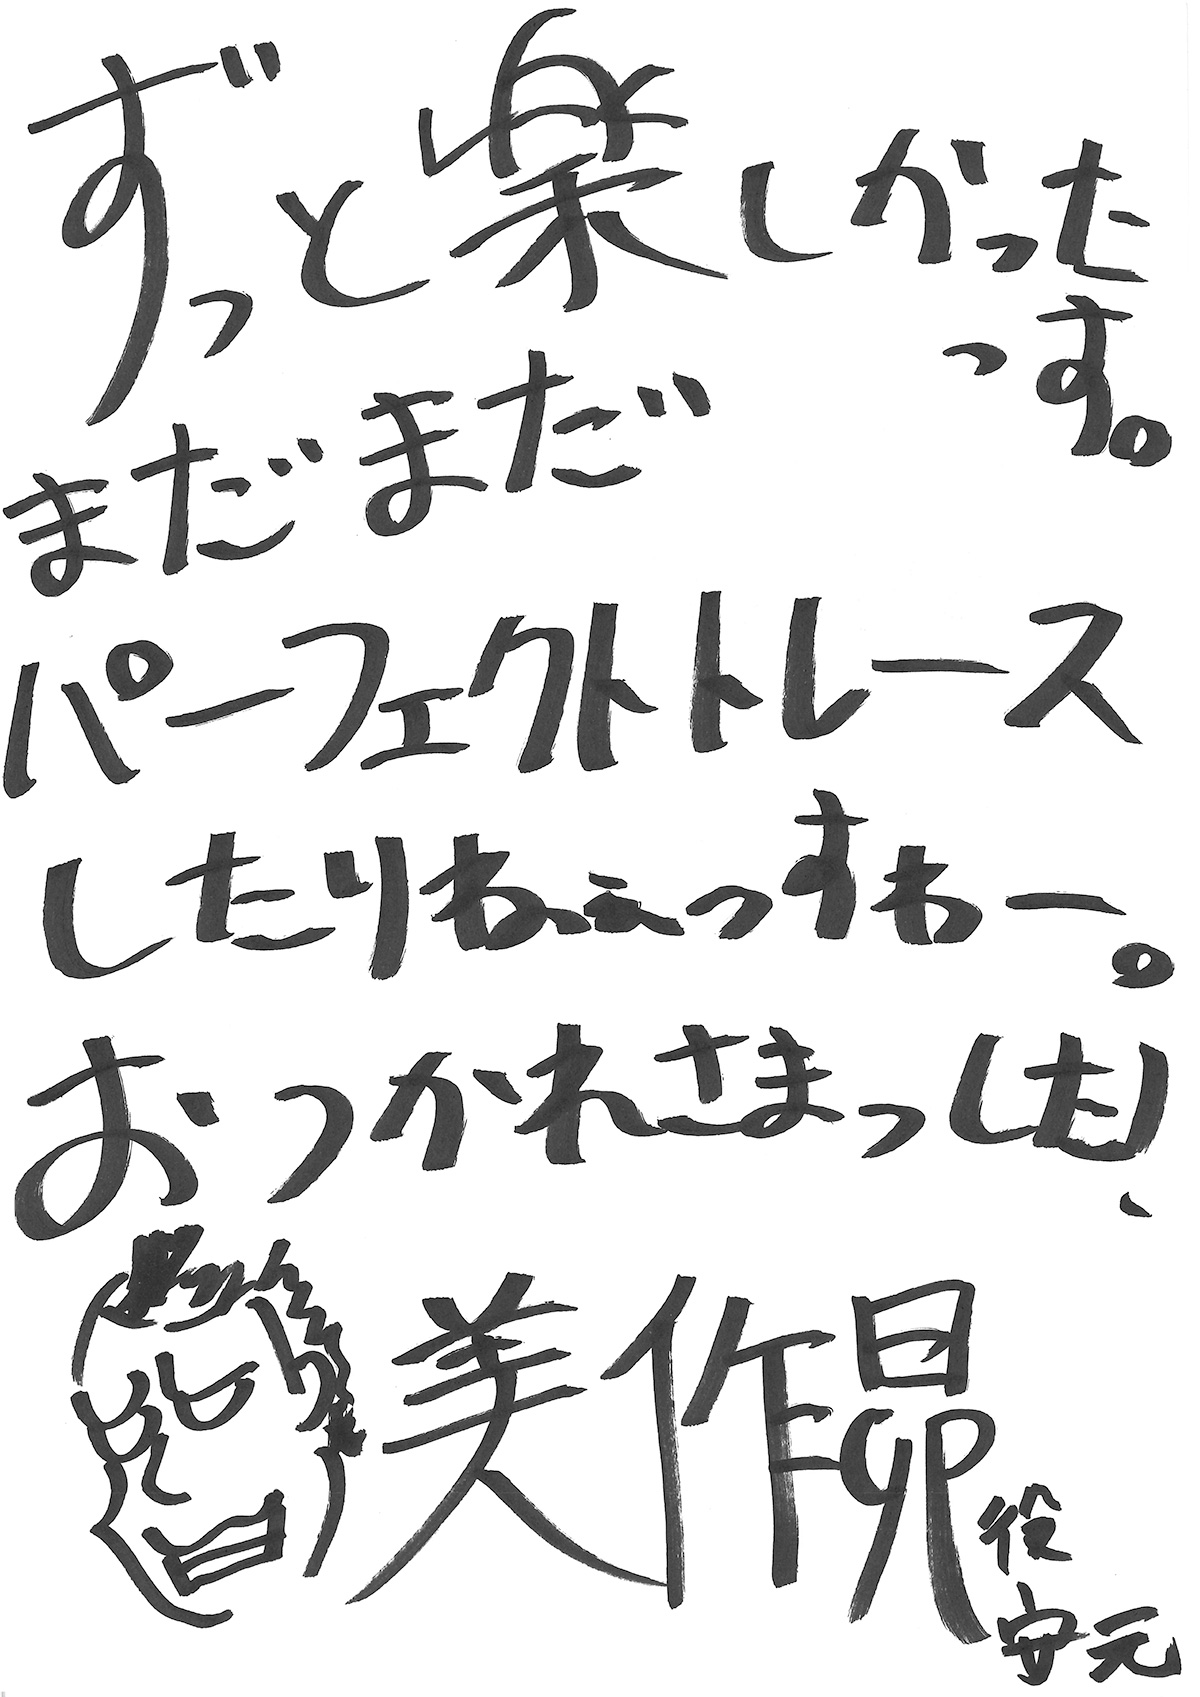 ずっと楽しかった
っす。
まだまだ
パーフェクトトレース
したりねぇっすわー。
おつかれさまっした!
美作昴
役
安元